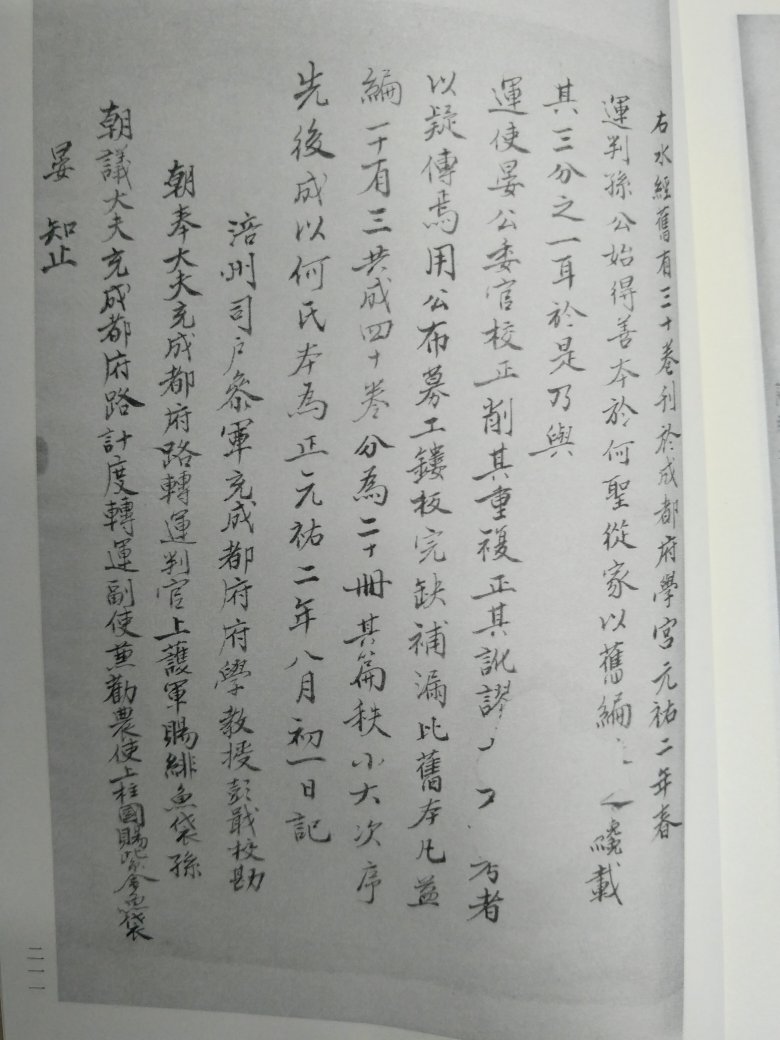 右水經舊有三十卷刊於成都府學宮元祐二年春
運判孫公始得善本於何聖從家以舊編 纔載
其三分之一耳於是乃與
運使晏公委官校正削其重複正其訛謬 者
以疑傳焉用公布募工鏤板完缺補漏比舊本凡益
編一十有三共成四十卷分為二十冊其篇秩小大次序
先後咸以何氏本為正元祐二年八月初一日記
涪州司戶叅軍充成都府府學教授彭戢校勘
朝奉大夫充成都府路轉運判官上護軍賜緋魚袋孫
朝議大夫充成都府路計度轉運副使兼勸農使上柱國賜紫金魚袋
晏 知止
二一一